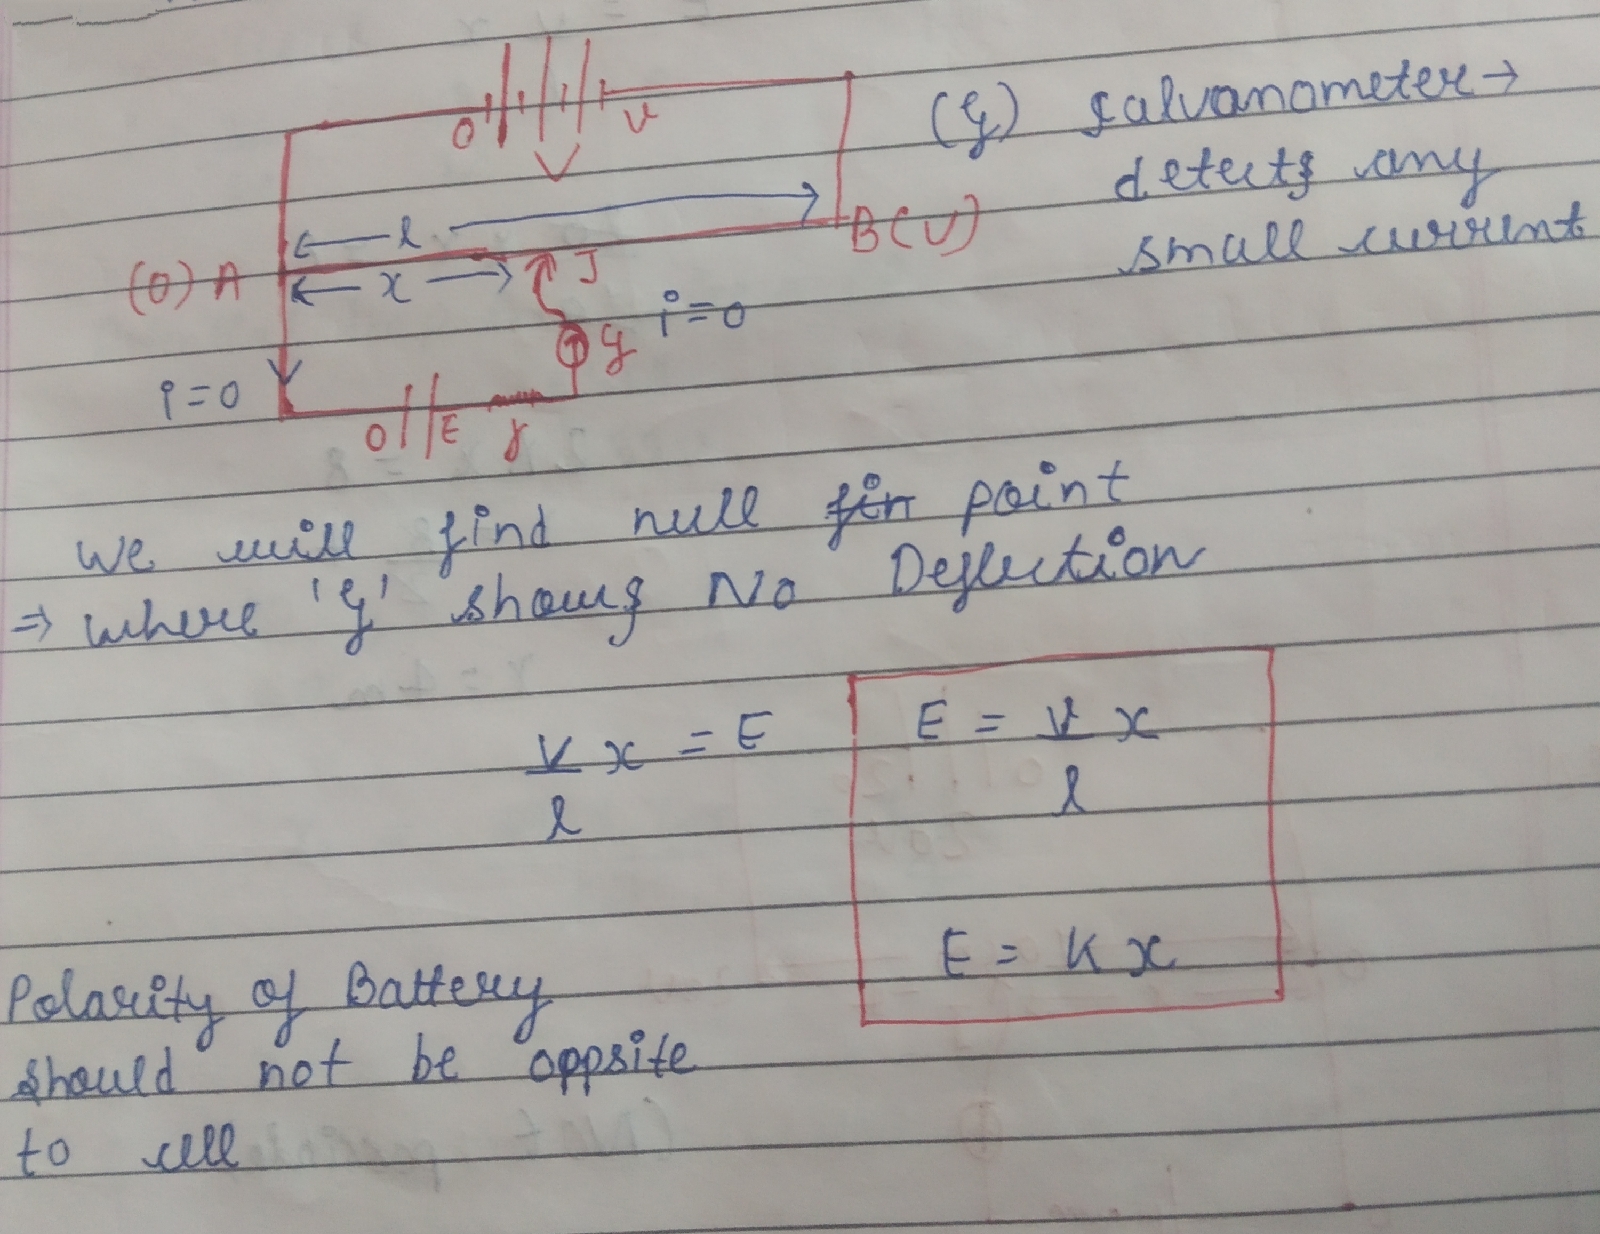 O V
V
(G) galvanometer →
detects any
small current
← l →
B(V)
(0) A
← x →
J
G i=0
i=0
O E r
We will find null point
⇒ where 'G' shows No Deflection
V x = E
l
E = V x
l
E = K x
Polarity of Battery
should not be oppsite
to cell